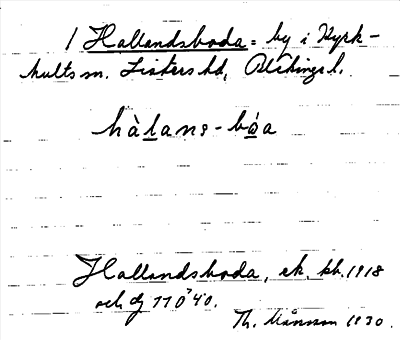 / Hallandsboda = by i Kyrk-
hults sn. Listers hd, Blekinge l.
hàlans-bóa
Hallandsboda, ek. kb. 1918
och dj 1930.
Th. Månsson 1930.